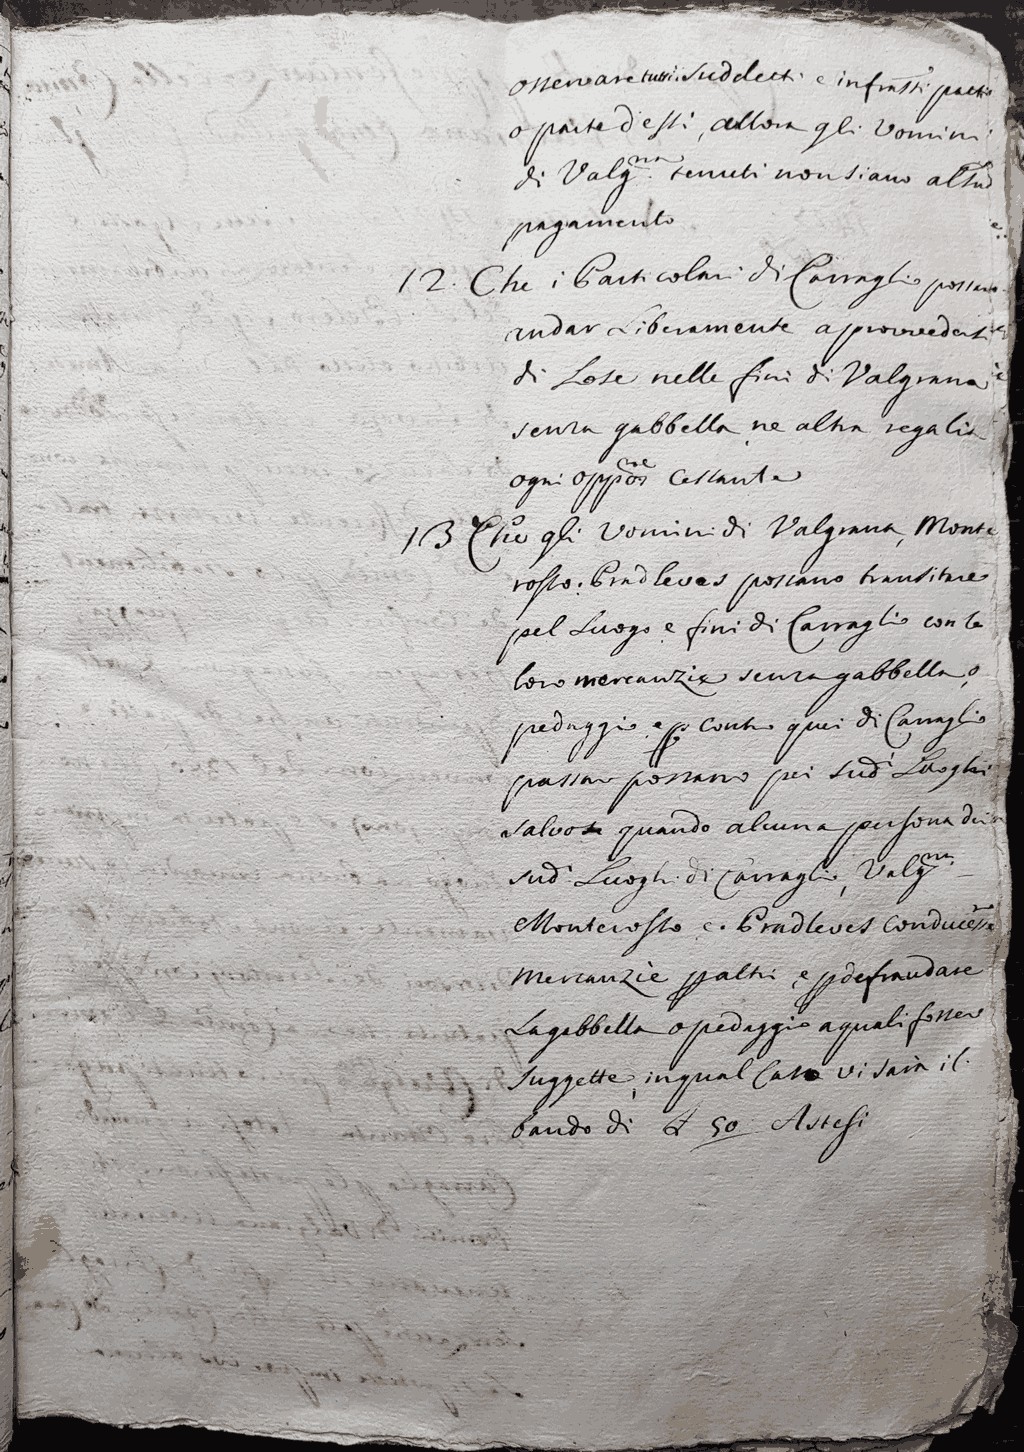 osservare tutti suddetti e infratti patti
o parte d'essi, allora gli Vomini
di Valg.na tenuti non siano al sud.o
pagamento
12. Che i Particolari di Carraglio possano
andar Liberamente a provvedersi
di Lose nelle fini di Valgrana
senza gabbella ne altra regalia
ogni oppos.ne cessante
13 Che gli Vomini di Valgrana, Monte
rosso. Pradleves possano transitare
pel Luogo e fini di Carraglio con le
loro mercanzie senza gabbella o
pedaggio, e p contro quei di Carraglio
passar possano pei sud.i Luoghi
salvo quando alcuna persona dei
sud.i Luoghi di Carraglio, Valg.na
Monterosso e Pradleves conducesse
mercanzie p altri e p defraudare
La gabbella o pedaggio a quali fosser
suggette, in qual Caso vi sarà il
bando di £ 50 Astesi